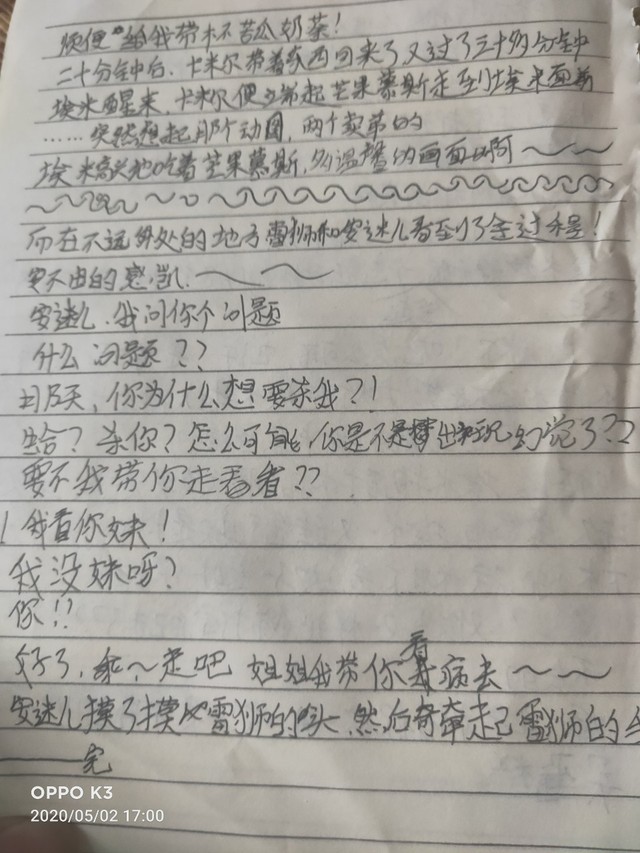 顺便"给我带杯苦瓜奶茶!
二十分钟后、卡米尔带着东西回来了又过了三十多分钟
埃米醒来,卡米尔便立端起芒果慕斯走到埃米面前
……突然想起那个动图,两个卖弟的
埃米高兴地吃着芒果慕斯,多温馨的画面啊～～
而在不远处的地方雷狮和安迷儿看到了全过程!
不由的感慨.～～
安迷儿、我问你个问题
什么问题??
那天,你为什么想要杀我?!
啥?杀你?怎么可能,你是不是出现幻觉了??
要不我带你去看看??
我看你妹!
我没妹呀?
你!!
好了,乖~走吧 姐姐我带你看病去～～
安迷儿摸了摸雷狮的头、然后牵起雷狮的
——完
OPPO K3
2020/05/02 17:00